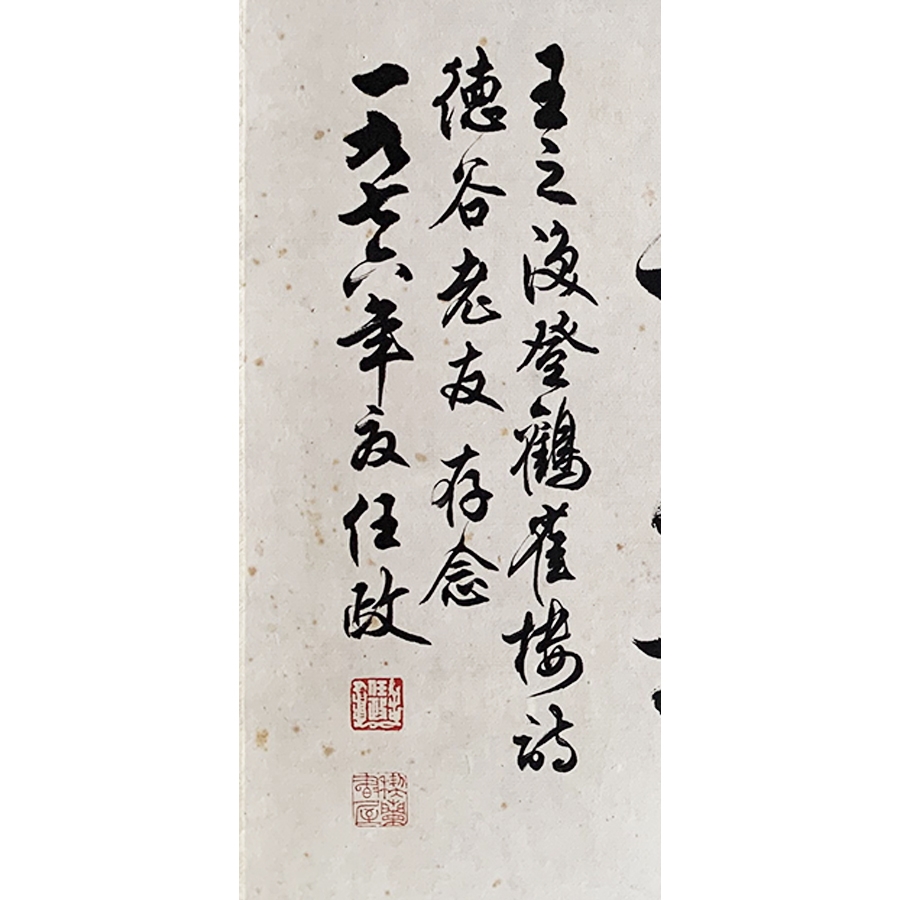 王之渙登鸛雀樓詩
德谷老友存念
一九七六年夏任政